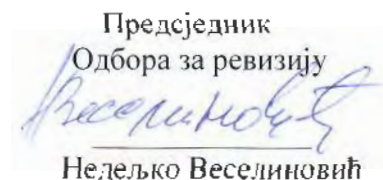 Предсједник
Одбора за ревизију
Веселиновић
Недељко Веселиновић